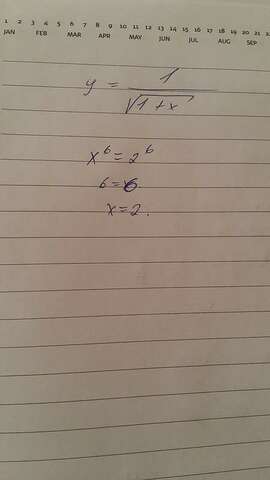 1 2 3 4 5 6 7 8 9 10 11 12 13 14 15 16 17 18 19 20 21 22
JAN FEB MAR APR MAY JUN JUL AUG SEP
y = 1/√(1+x)
x⁶ = 2⁶
6 = 6.
x = 2.